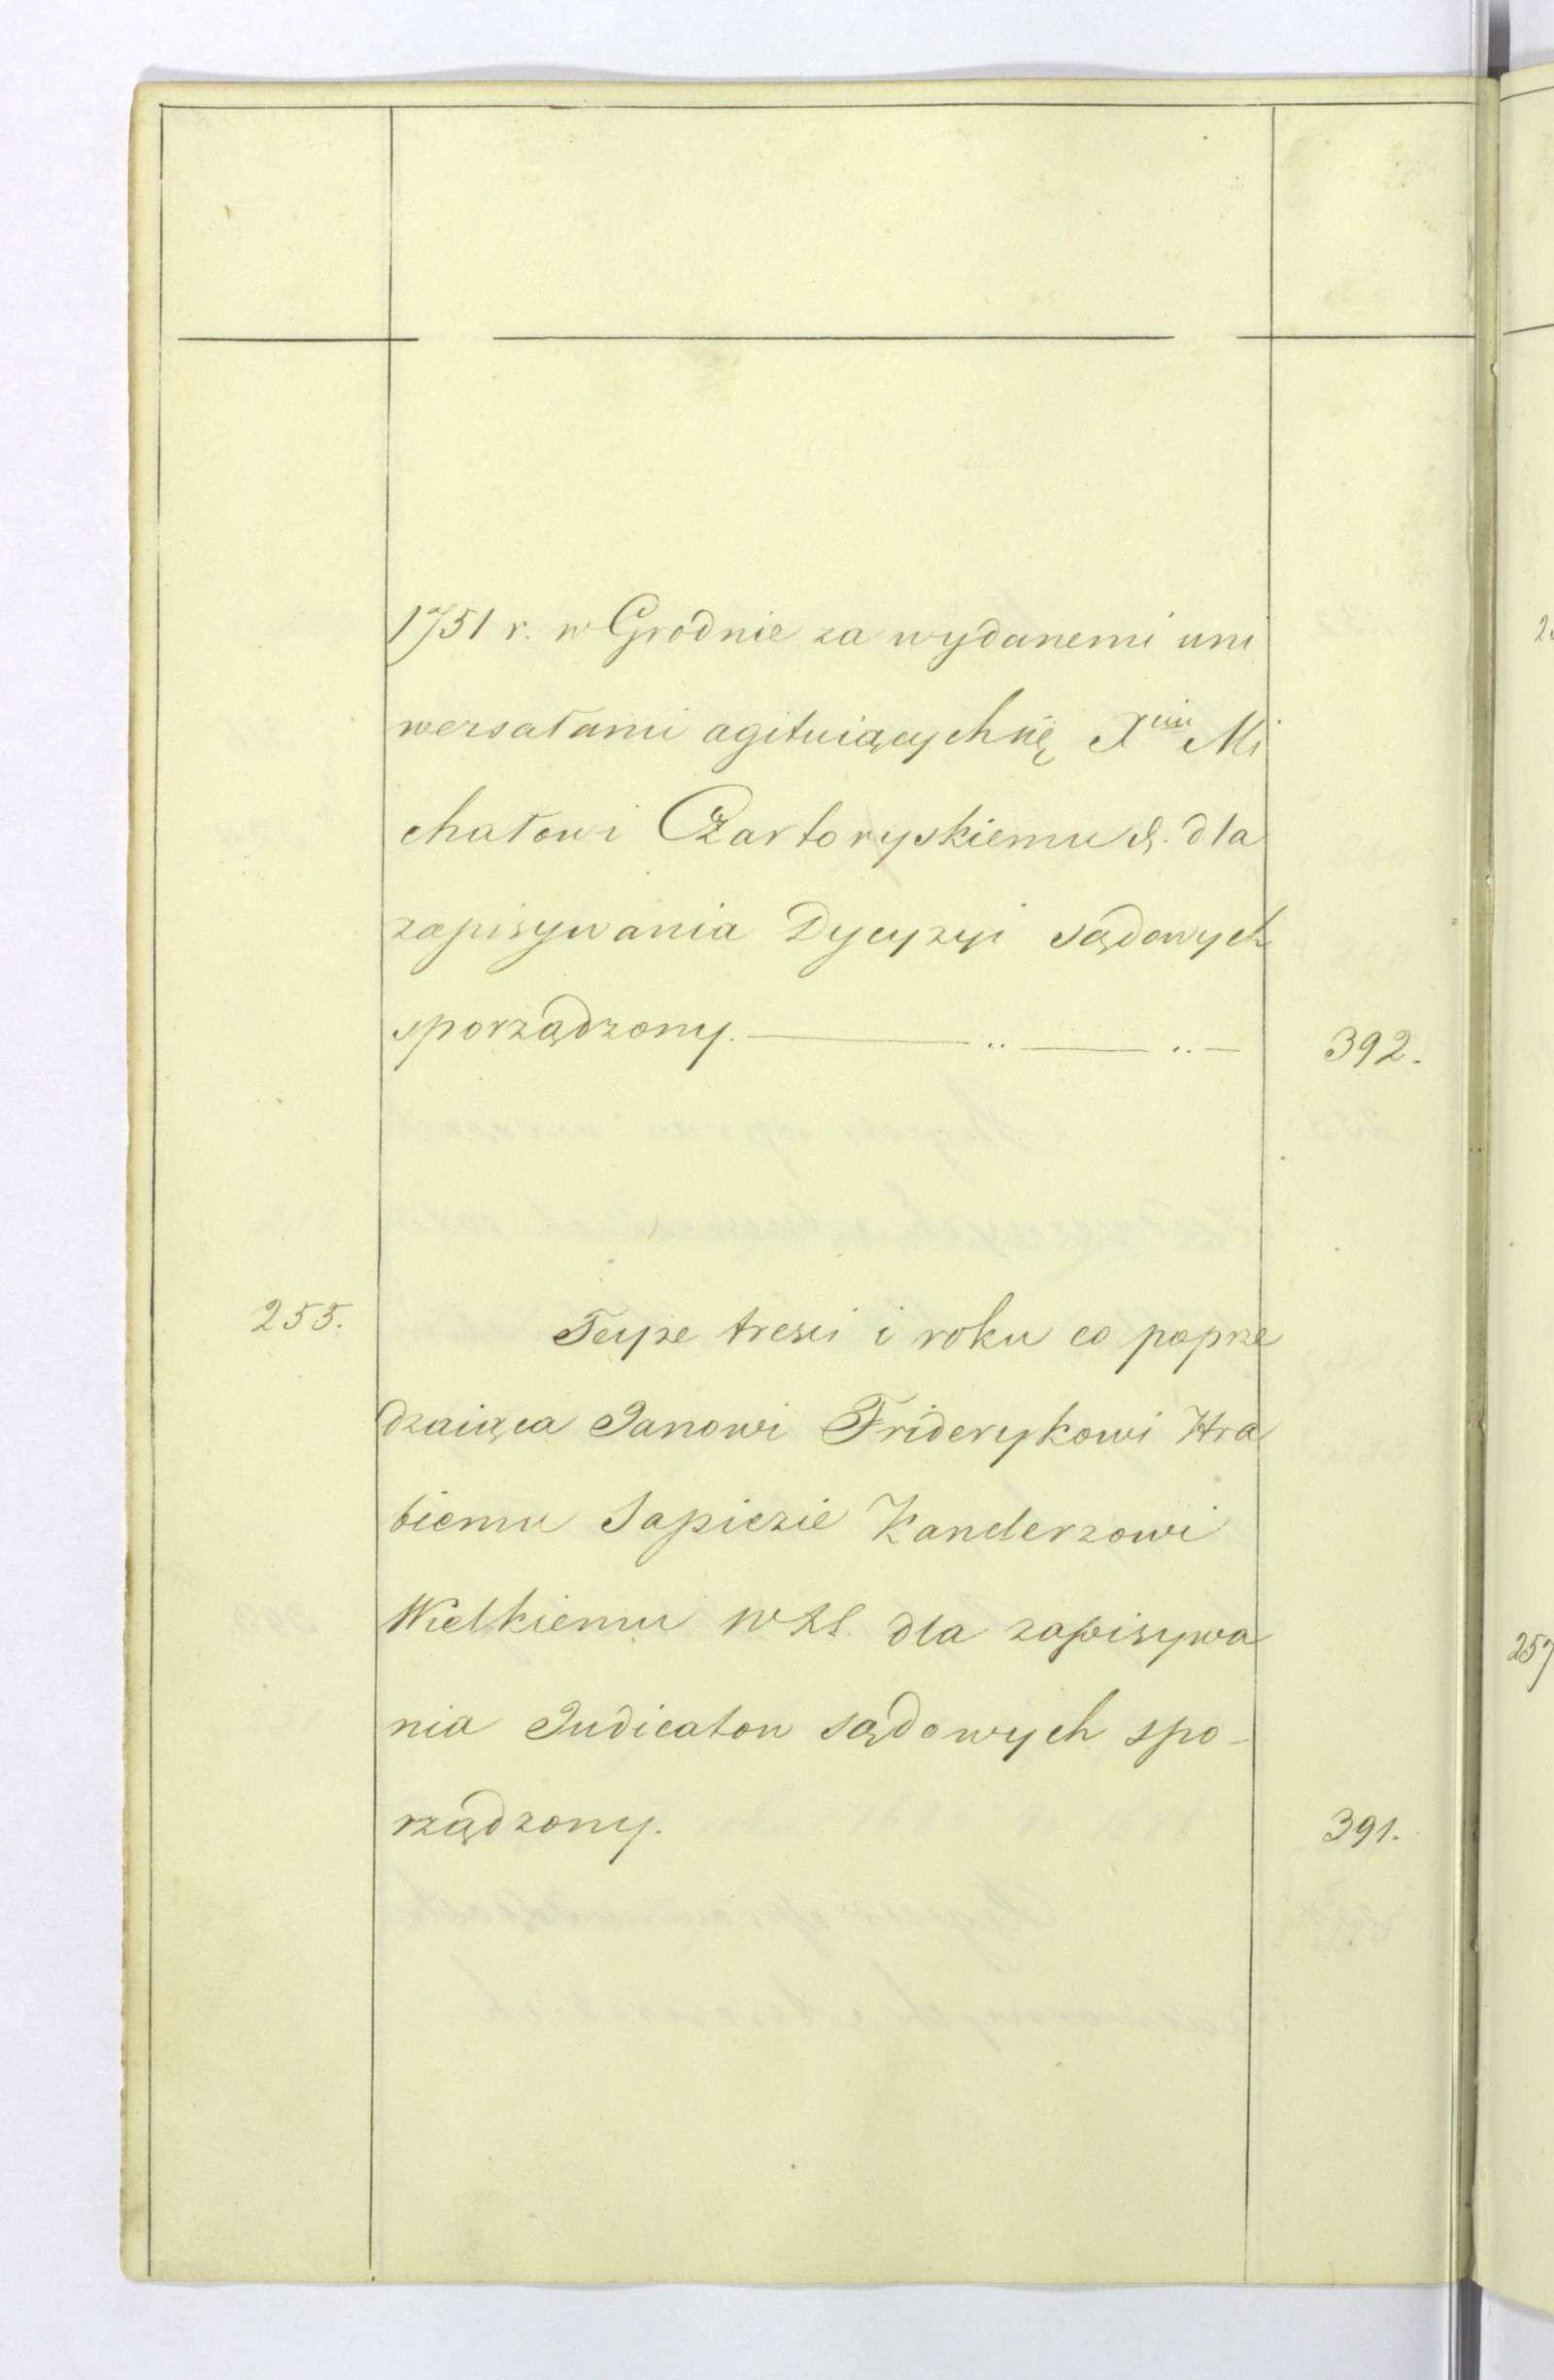 1751 r. w Grodnie za wydanemi uni
wersałami agituiących się Xciu Mi
chałowi Czartoryskiemu &. dla
zapisywania Dycyzyi sądowych
sporządzony. 392.
255. Teyże tresci i roku co poprze
dzaiąca Janowi Friderykowi Hra
biemu Sapiezie Kanclerzowi
Wielkiemu WXL. dla zapisywa
nia Judicatow sądowych spo-
rządzony. 391.
257